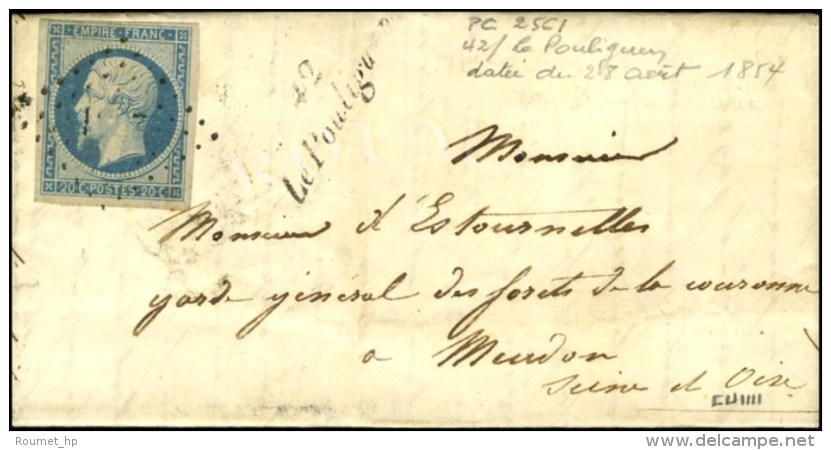 EMPIRE FRANC
20 C. POSTES 20 C.
42
Le Pouliguen
PC 2561
42/ le Pouliguen
datée du 28 août 1854
Monsieur
Monsieur d'Estournelles
garde général des forêts de la couronne
a Meudon
Seine et Oise
Roumet_hp
www.delcampe.net